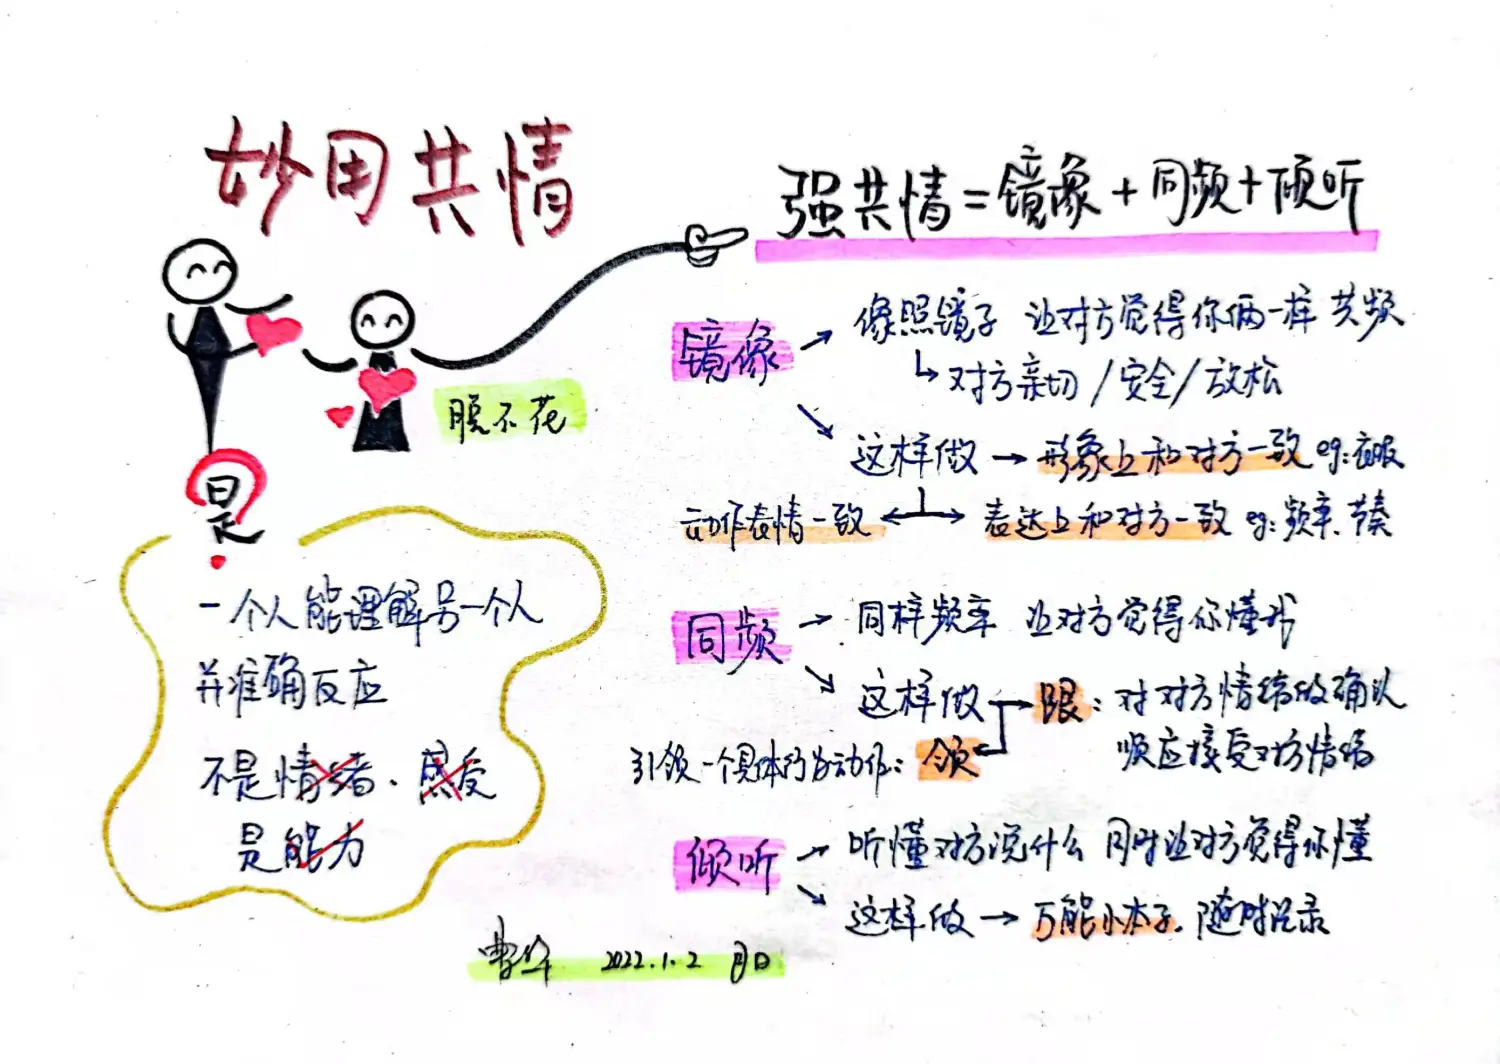 妙用共情
脱不花
是
一个人能理解另一个人
并准确反应
不是情绪、感受
是能力
强共情=镜像+同频+倾听
镜像
像照镜子 让对方觉得你俩一样 共频
对方亲切/安全/放松
这样做 形象上和对方一致 eg:衣服
动作表情一致 表达上和对方一致 eg:频率、节奏
同频
同样频率 让对方觉得你懂我
这样做 跟:对对方情绪做确认
顺应接受对方情绪
引领一个具体行为动作: 领
倾听
听懂对方说什么 同时让对方觉得你懂
这样做 万能小本子、随时记录
2022.1.2